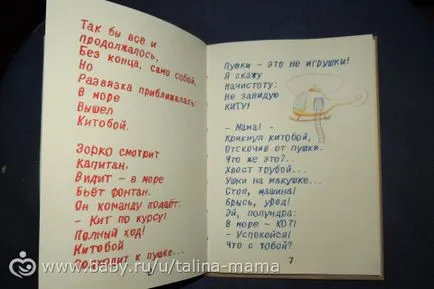 Так бы всё и
продолжалось,
Без конца, само собой,
Но
Развязка приближалась:
В море
Вышел
Китобой.
Зорко смотрит
Капитан.
Видит - в море
Бьёт фонтан.
Он команду подаёт:
- Кит по курсу!
Полный ход!
Китобой
Подходит к пушке...
Пушки - это не игрушки!
Я скажу
Начистоту:
Не завидую
КИТУ!
- Мама! -
Крикнул китобой,
Отскочив от пушки.
Что же это?..
Хвост трубой...
Ушки на макушке...
Стоп, машина!
Брысь, урод!
Эй, полундра:
В море - КОТ!
- Успокойся!
Что с тобой?
7
www.baby.ru/u/talina-mama